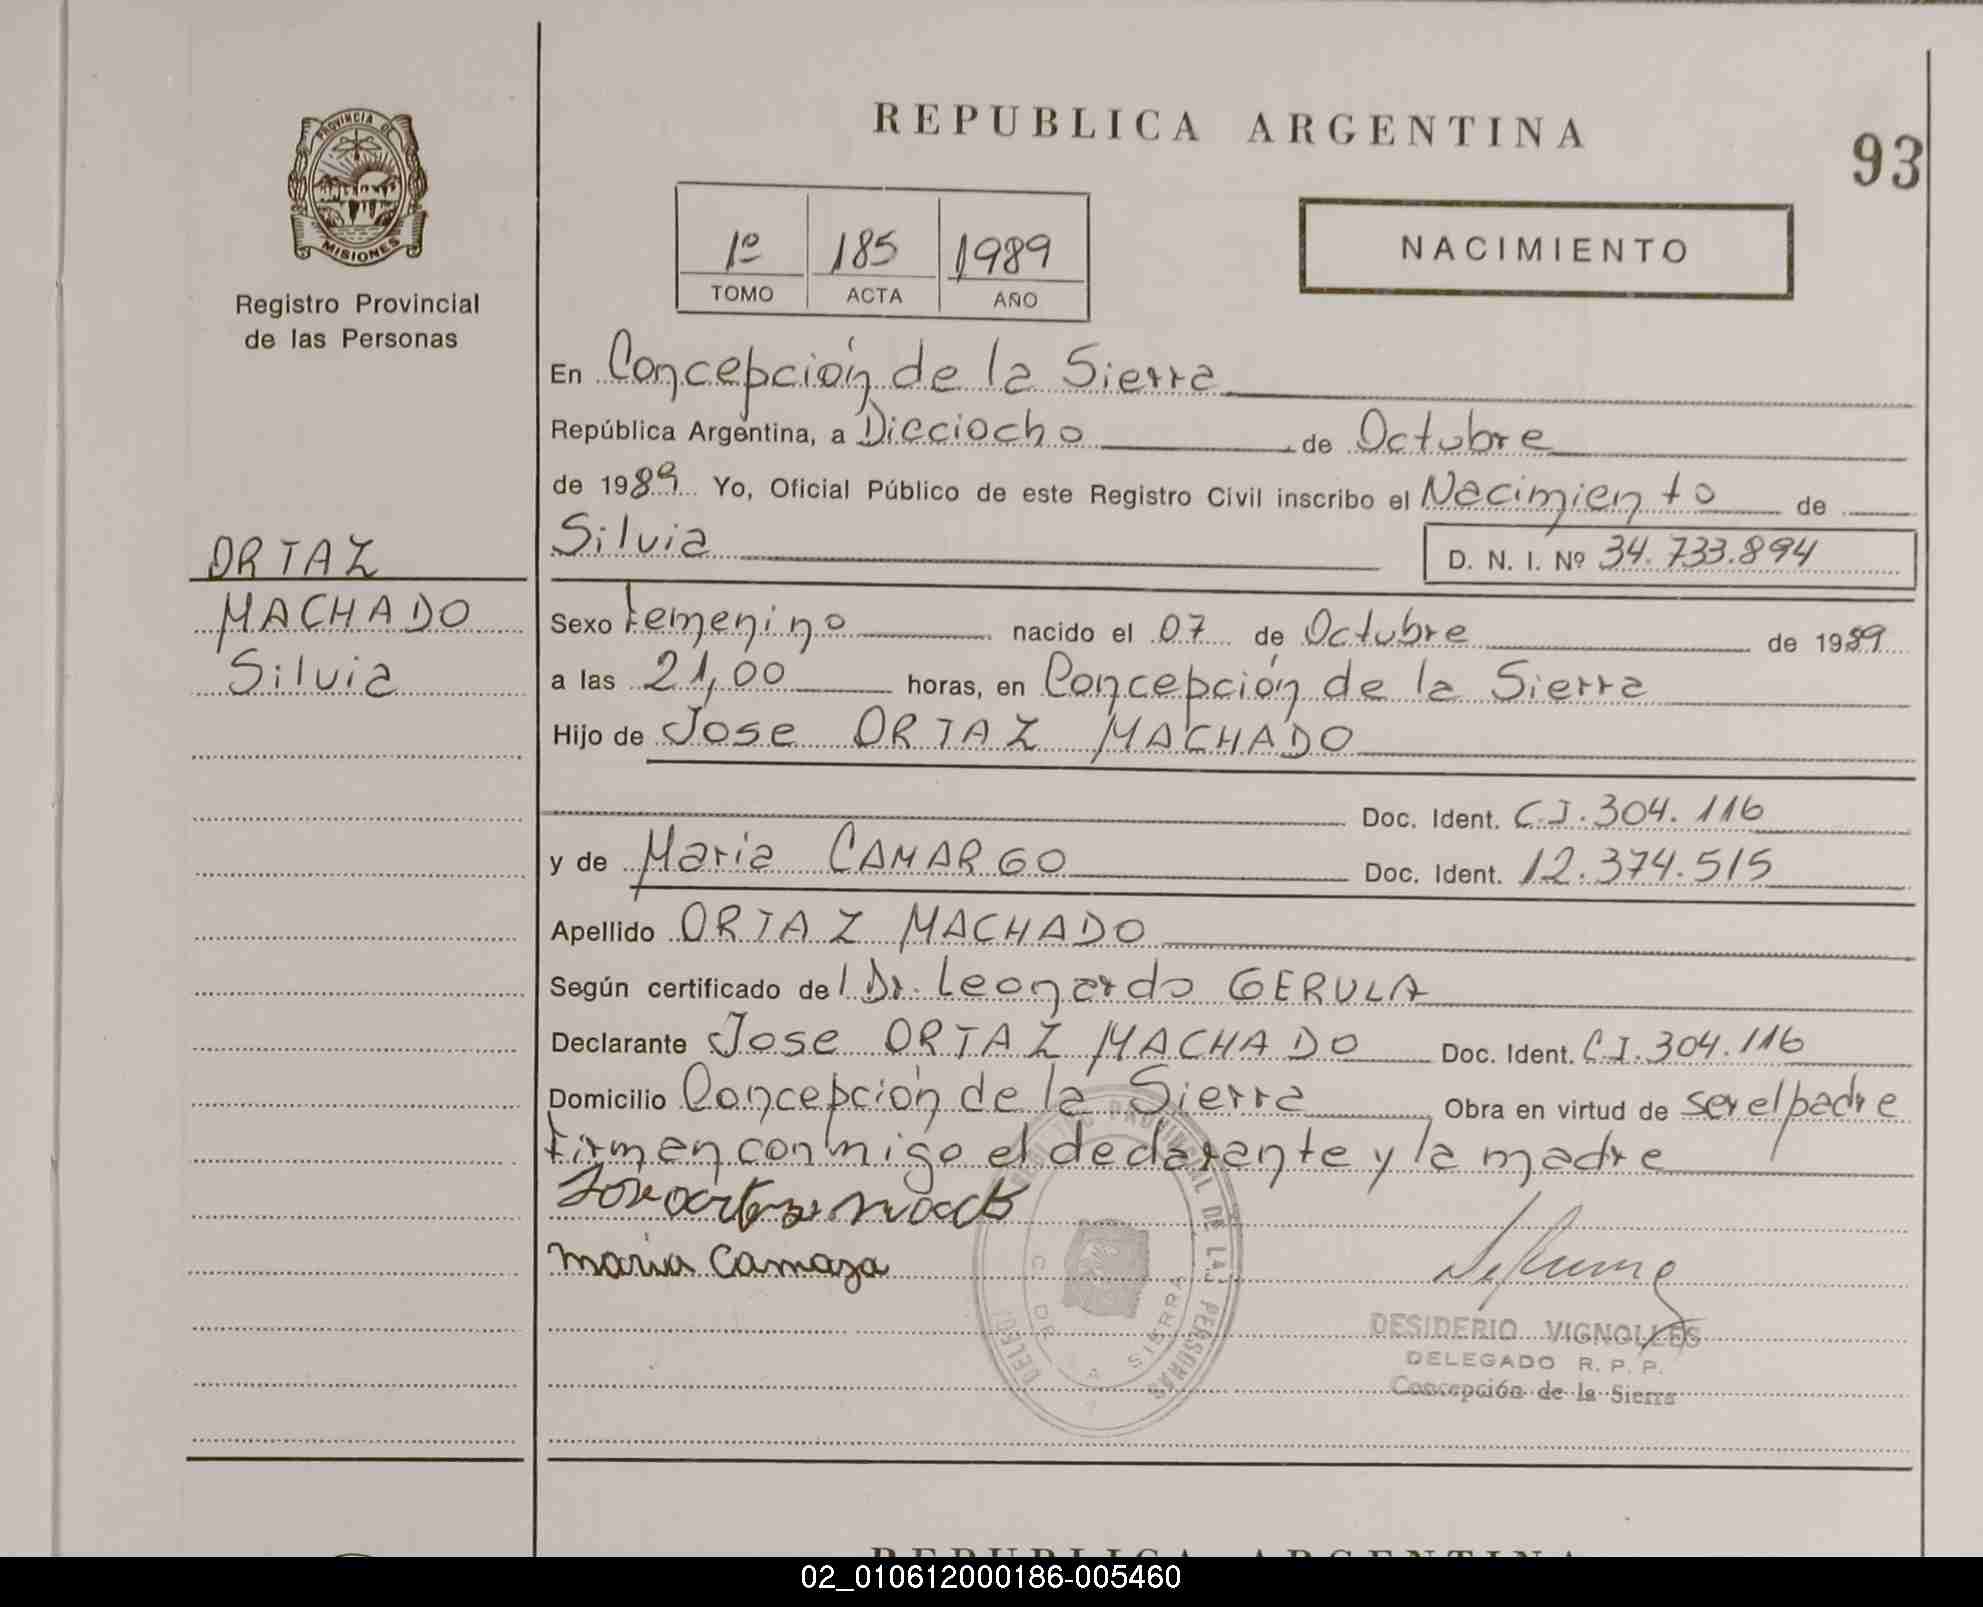 REPUBLICA ARGENTINA
93
PROVINCIA DE
MISIONES
Registro Provincial
de las Personas
1º 185 1989
TOMO ACTA AÑO
NACIMIENTO
En Concepción de la Sierra
República Argentina, a Dieciocho de Octubre
de 1989 Yo, Oficial Público de este Registro Civil inscribo el Nacimiento de
Silvia D. N. I. Nº 34.733.894
ORTAZ
MACHADO
Silvia
Sexo Femenino nacido el 07 de Octubre de 1989
a las 21,00 horas, en Concepción de la Sierra
Hijo de Jose ORTAZ MACHADO
Doc. Ident. C.I. 304.116
y de Maria CAMARGO Doc. Ident. 12.374.515
Apellido ORTAZ MACHADO
Según certificado del Dr. Leonardo GERULA
Declarante Jose ORTAZ MACHADO Doc. Ident. C.I. 304.116
Domicilio Concepción de la Sierra Obra en virtud de ser el padre
Firman conmigo el declarante y la madre
maria Camaga
PROVINCIAL DE LAS PERSONAS
C. DE SIERRA
DESIDERIO VIGNOLLES
DELEGADO R. P. P.
Concepción de la Sierra
REPUBLICA ARGENTINA
02_010612000186-005460